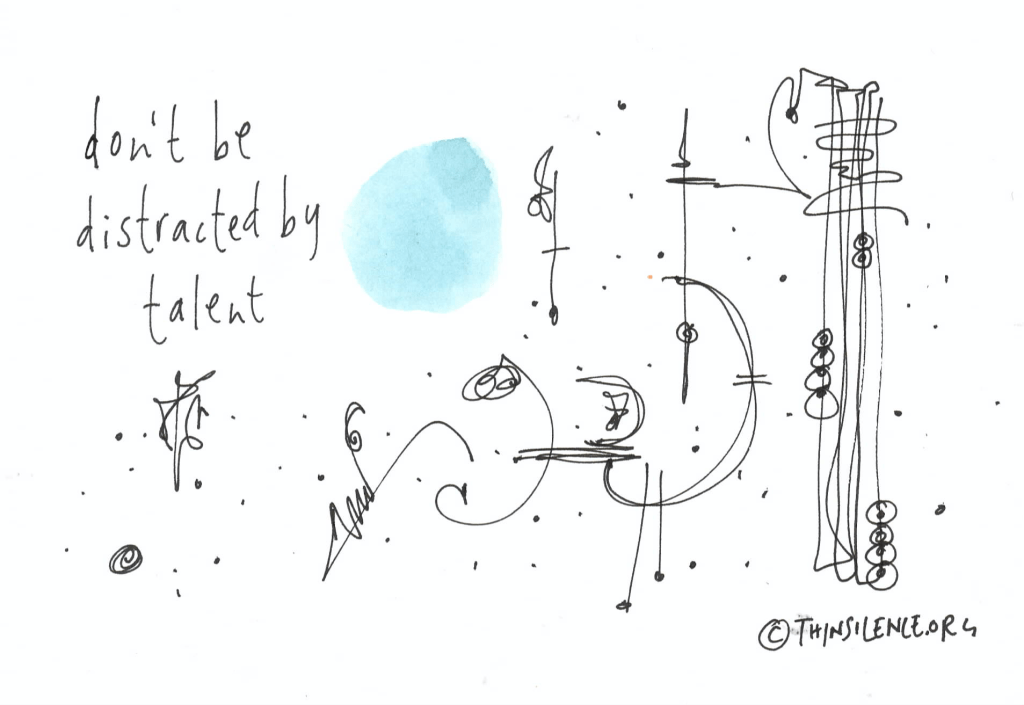 don't be
distracted by
talent
© THINSILENCE.ORG